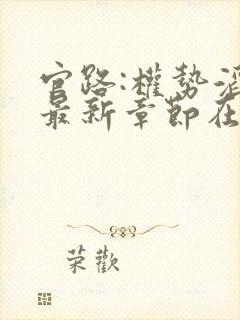 官路:權勢
最新章節在
荣歡